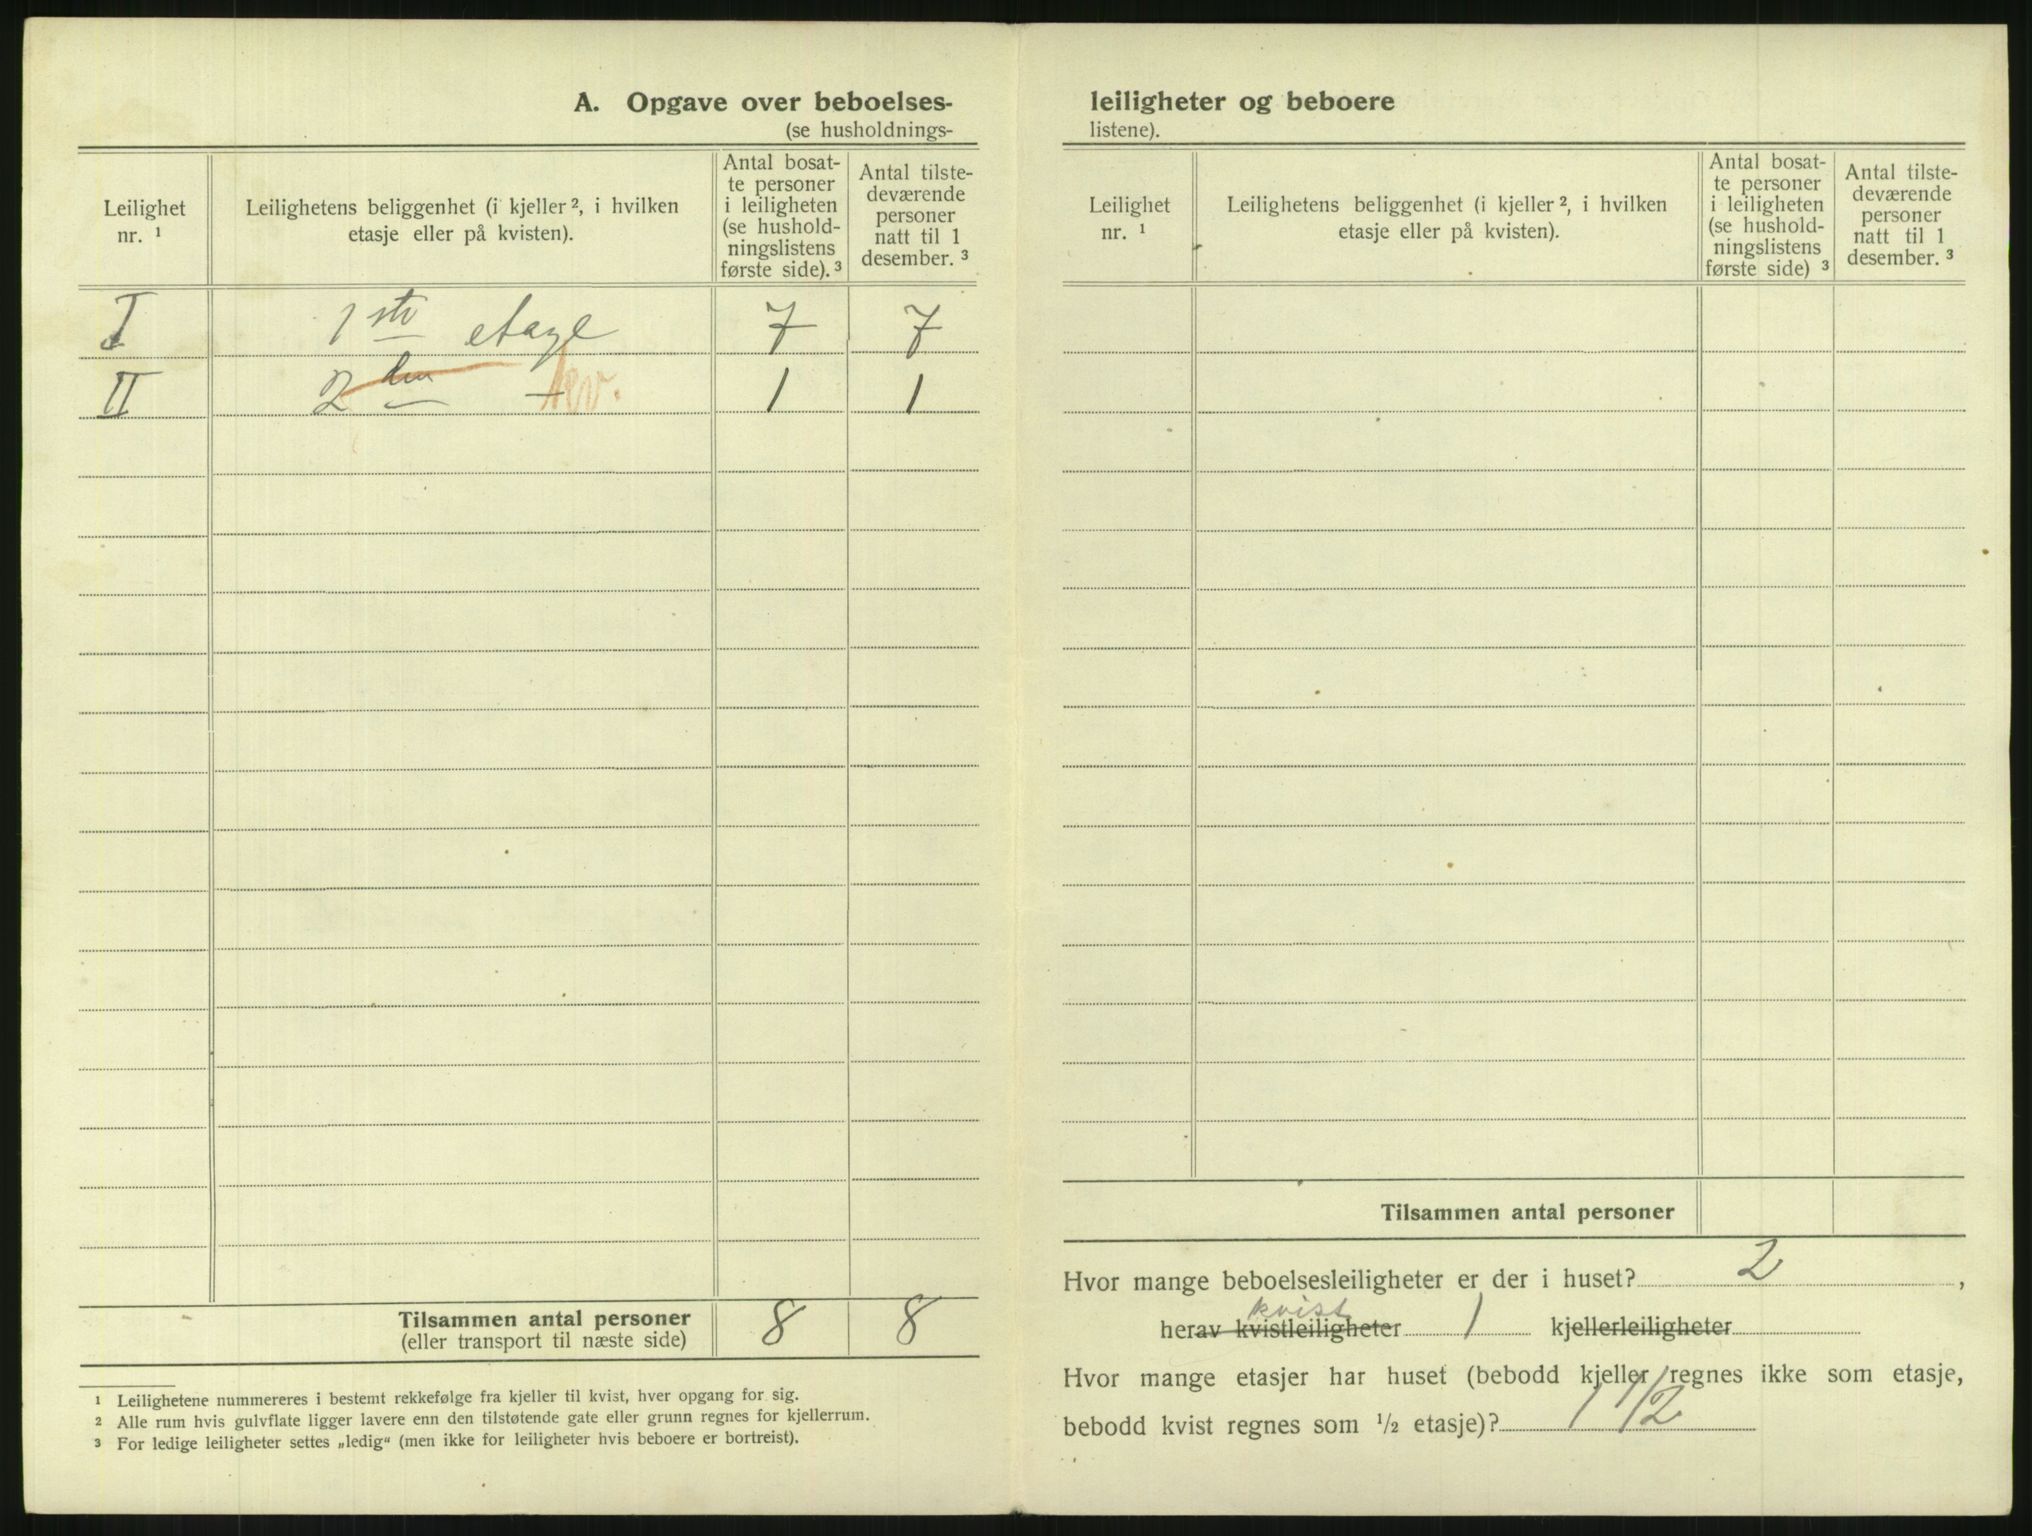 A. Opgave over beboelses-
(se husholdnings-
Leilighet
nr. ¹
Leilighetens beliggenhet (i kjeller ², i hvilken
etasje eller på kvisten).
Antal bosat-
te personer
i leiligheten
(se hushold-
ningslistens
første side). ³
Antal tilste-
deværende
personer
natt til 1
desember. ³
I 1 ste etage 7 7
II 2 den 1 1
Tilsammen antal personer 8 8
(eller transport til næste side)
¹ Leilighetene nummereres i bestemt rekkefølge fra kjeller til kvist, hver opgang for sig.
² Alle rum hvis gulvflate ligger lavere enn den tilstøtende gate eller grunn regnes for kjellerrum.
³ For ledige leiligheter settes „ledig“ (men ikke for leiligheter hvis beboere er bortreist).
leiligheter og beboere
listene).
Leilighet
nr. ¹
Leilighetens beliggenhet (i kjeller ², i hvilken
etasje eller på kvisten).
Antal bosat-
te personer
i leiligheten
(se hushold-
ningslistens
første side) ³
Antal tilste-
deværende
personer
natt til 1
desember. ³
Tilsammen antal personer
Hvor mange beboelsesleiligheter er der i huset? 2 ,
kvist
herav kvistleiligheter 1 kjellerleiligheter
Hvor mange etasjer har huset (bebodd kjeller regnes ikke som etasje,
bebodd kvist regnes som ½ etasje)? 1 1/2